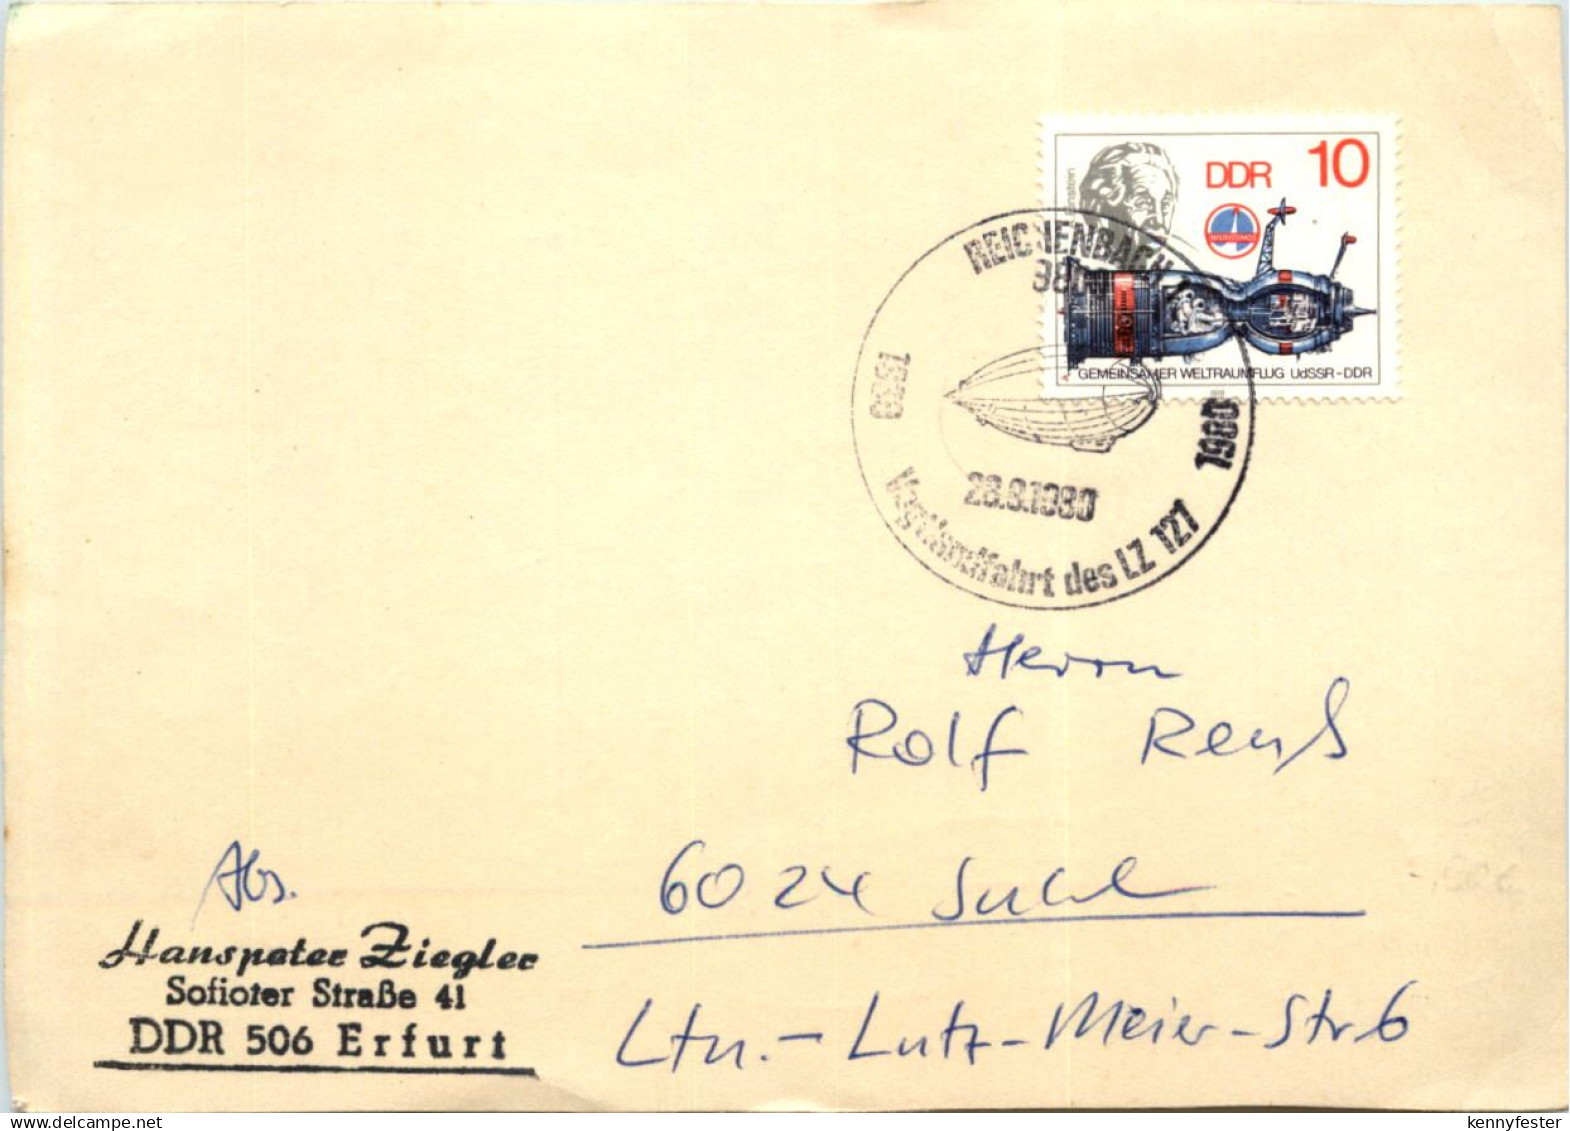 Einstein
DDR 10
INTERKOSMOS
GEMEINSAMER WELTRAUMFLUG UdSSR-DDR
REICHENBACH
1980
28.9.1980
Vogtlandfahrt des LZ 127
Herrn
Rolf Reuß
6024 Suhl
Ltn.-Lutz-Meier-Str 6
Abs.
Hanspeter Ziegler
Sofioter Straße 41
DDR 506 Erfurt
kennyfester